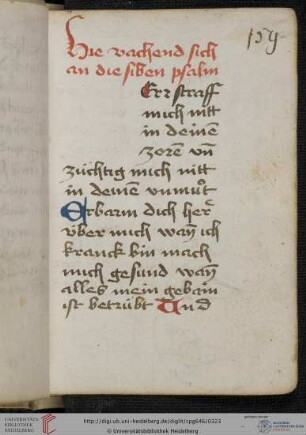 159
Hie vachend sich
an die siben psalm
Err straff
mich nitt
in deinē
zorē vn̄
züchtig mich nitt
in deinē vnmuͦt
Erbarm dich her
über mich wan̄ ich
kranck bin mach
mich gesund wan̄
alles mein gebain
ist betrübt Und
UNIVERSITÄTS-
BIBLIOTHEK
HEIDELBERG
http://digi.ub.uni-heidelberg.de/diglit/cpg646/0323
© Universitätsbibliothek Heidelberg